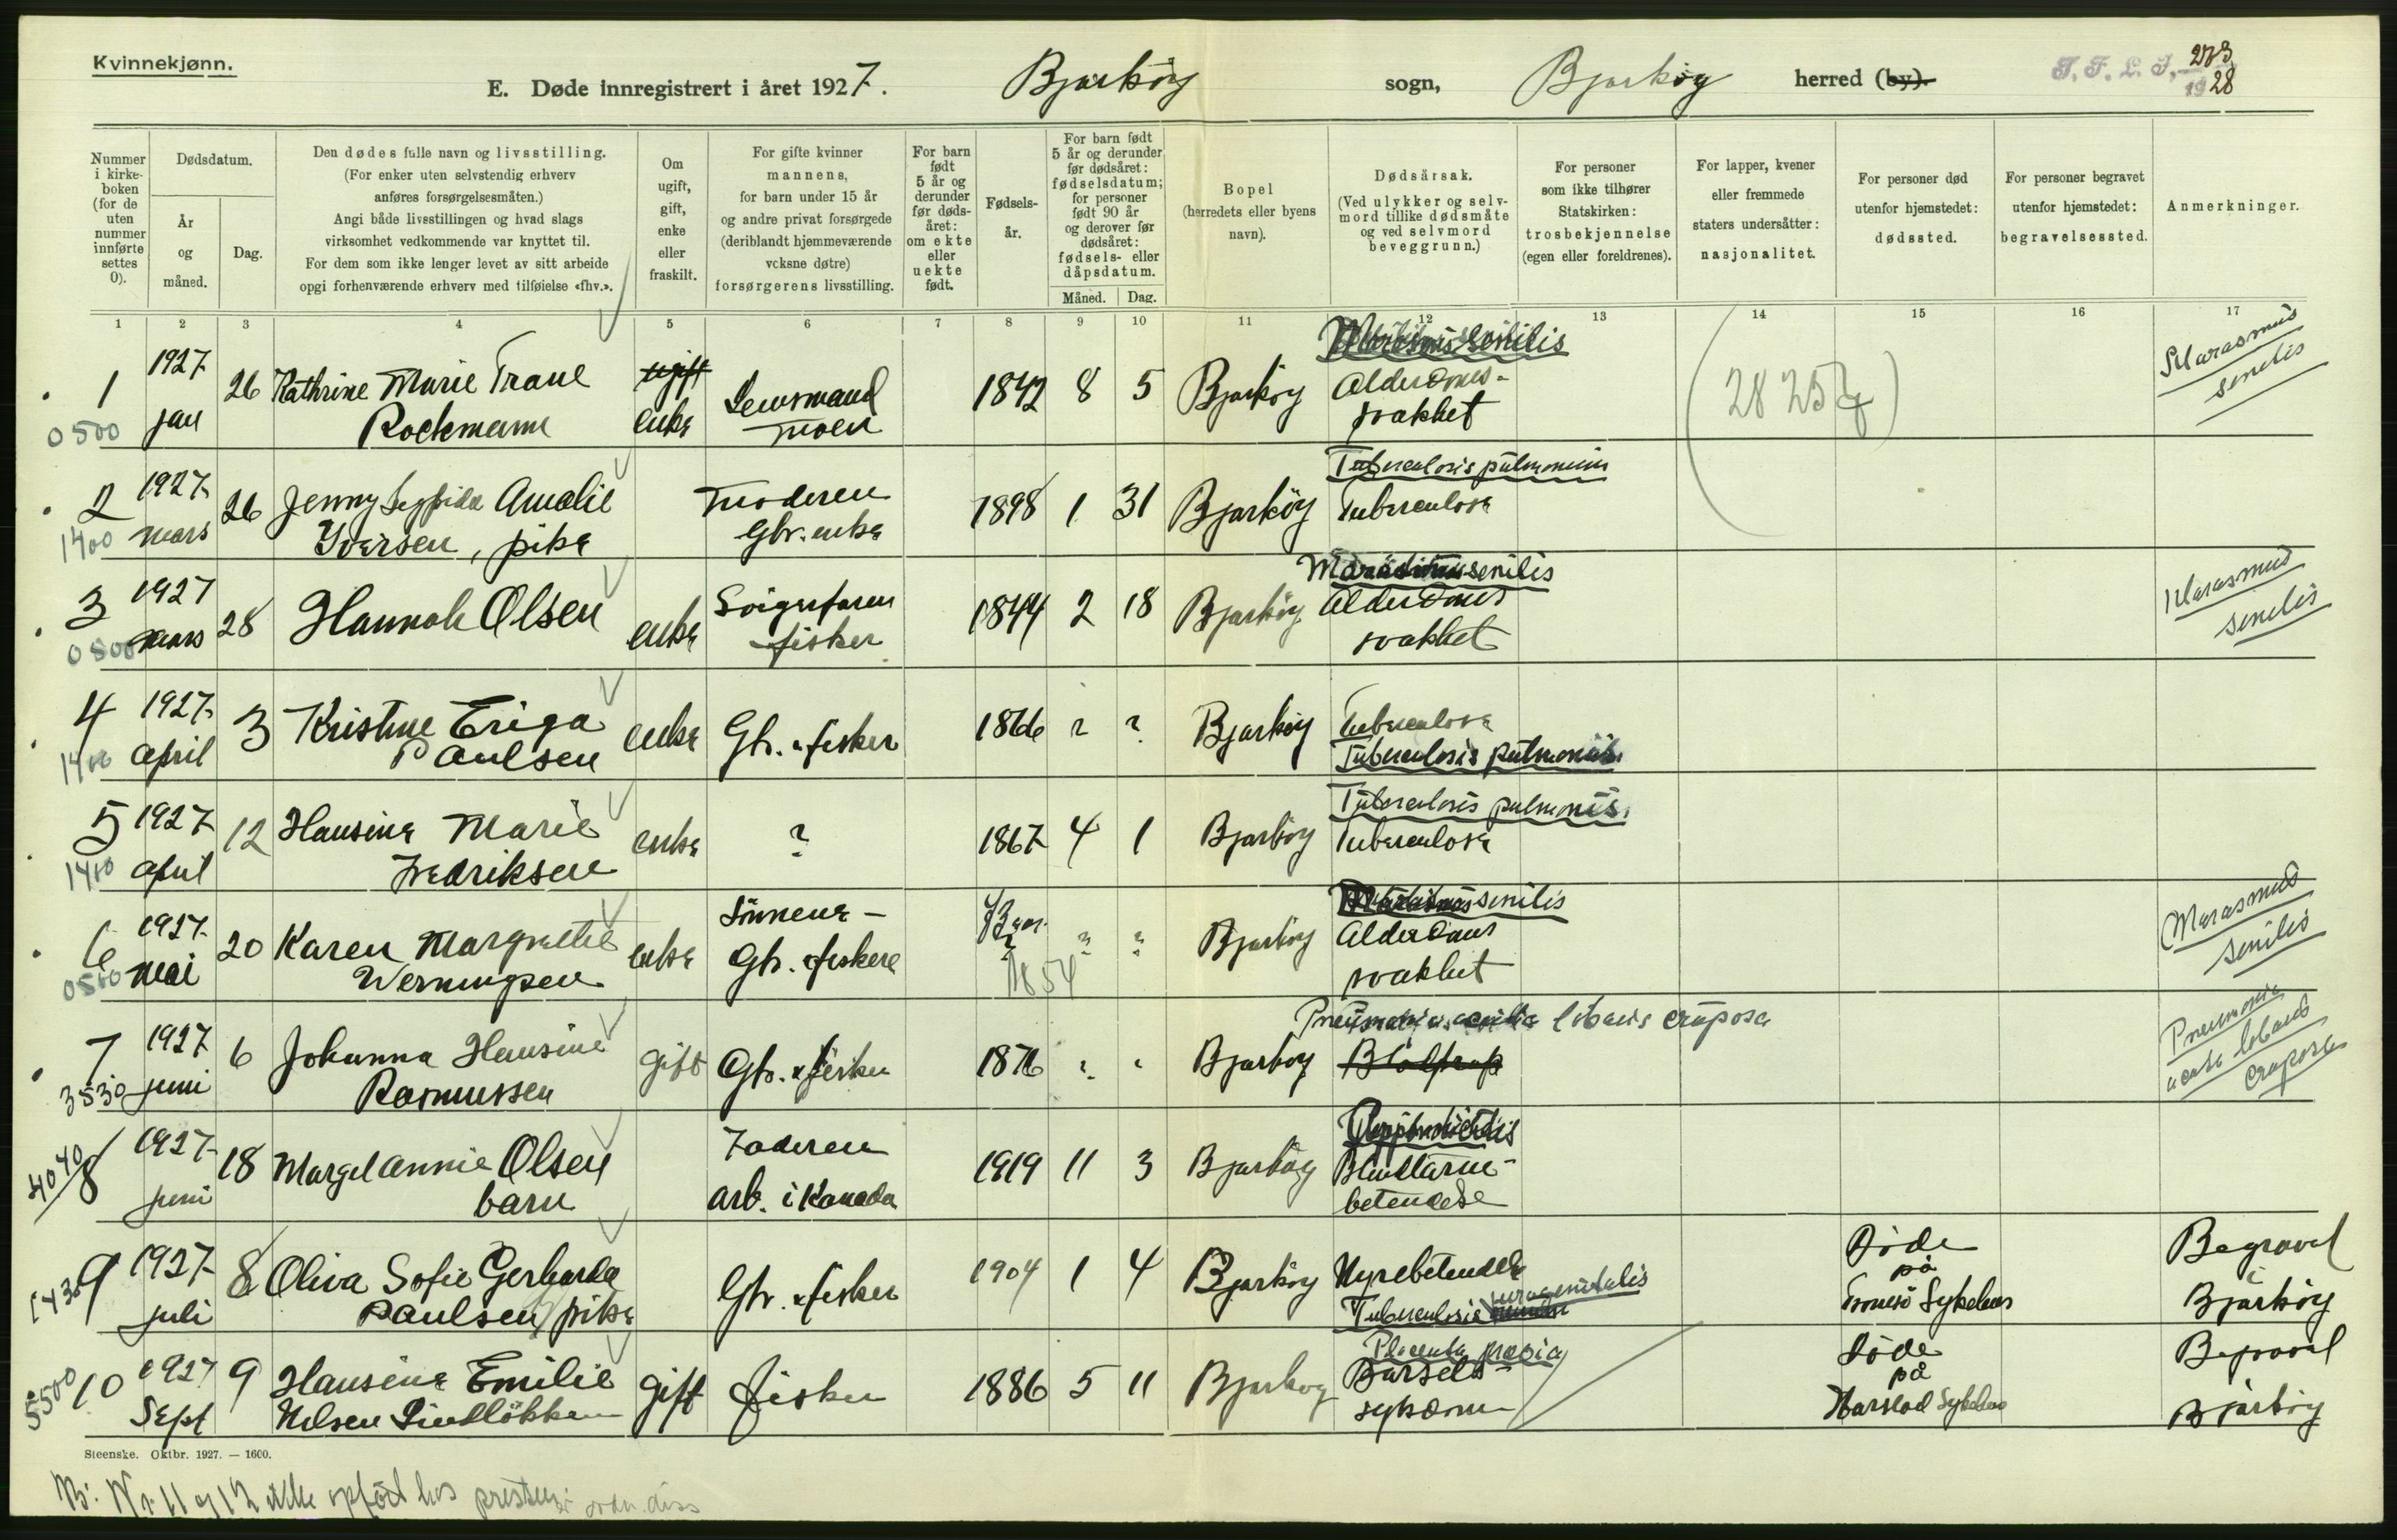 Kvinnekjønn.
E. Døde innregistrert i året 1927. Bjarkøy sogn, Bjarkøy herred (by).
S. F. L. J. 273
1928
Nummer i kirkeboken (for de uten nummer innførte settes 0).
Dødsdatum.
År og måned.
Dag.
Den dødes fulle navn og livsstilling.
(For enker uten selvstendig erhverv
anføres forsørgelsesmåten.)
Angi både livsstillingen og hvad slags
virksomhet vedkommende var knyttet til.
For dem som ikke lenger levet av sitt arbeide
opgi forhenværende erhverv med tilføielse «fhv.».
Om ugift, gift, enke eller fraskilt.
For gifte kvinner
mannens,
for barn under 15 år
og andre privat forsørgede
(deriblandt hjemmeværende
voksne døtre)
forsørgerens livsstilling.
For barn født 5 år og derunder før dødsåret: om ekte eller uekte født.
Fødselsår.
For barn født
5 år og derunder
før dødsåret:
fødselsdatum;
for personer
født 90 år
og derover før
dødsåret:
fødsels- eller
dåpsdatum.
Måned. Dag.
Bopel
(herredets eller byens
navn).
Dødsårsak.
(Ved ulykker og selv-
mord tillike dødsmåte
og ved selvmord
beveggrunn.)
For personer
som ikke tilhører
Statskirken:
trosbekjennelse
(egen eller foreldrenes).
For lapper, kvener
eller fremmede
staters undersåtter:
nasjonalitet.
For personer død
utenfor hjemstedet:
dødssted.
For personer begravet
utenfor hjemstedet:
begravelsessted.
Anmerkninger.
1 2 3 4 5 6 7 8 9 10 11 12 13 14 15 16 17
1 1927 jan 26 Kathrine Marie Trane ugift enke Lensmand 1842 8 5 Bjarkøy Marasmus senilis
Alderdoms-
svakhet
Marasmus
senilis
0500
2 1927 mars 26 Jenny Amalie
Iversen, pike
Moderen
Gbr. enke
1898 1 31 Bjarkøy Tuberculosis pulmonum
Tuberculose
1400
3 1927 mars 28 Hannah Olsen enke Svigerfaren
fisker
1844 2 18 Bjarkøy Marasmus senilis
Alderdoms
svakhet
Marasmus
senilis
0500
4 1927 april 3 Kristine Eriga
Paulsen
enke Gbr. & fisker 1866 ? ? Bjarkøy Tuberculose
Tuberculosis pulmonis.
1400
5 1927 april 12 Hansine Marie
Fredriksen
enke ? 1867 4 1 Bjarkøy Tuberculosis pulmonis.
Tuberculose
1400
6 1927 mai 20 Karen Margrethe
enke Sønnene -
Gbr. & fiskere
1854 ? ? Bjarkøy Marasmus senilis
Alderdoms
svakhet
Marasmus
senilis
0500
7 1927 juni 6 Johanna Hansine
Rasmussen
gift Gbr. & fisker 1876 Bjarkøy Pneumonia acuta lobaris cruposa
Pneumonia
acuta lobaris
cruposa
3530
8 1927 juni 18 Margel Annie Olsen
barn
Faderen
arb. i Kanada
1919 11 3 Bjarkøy
Blindtarm-
betendelse
4040
9 1927 juli 8 Oliva Sofie Gerharda
Paulsen, pike
Gbr. & fisker 1904 1 4 Bjarkøy Nyrebetendelse
Tuberculosis urogenitalis
Døde
på
Tromsø Sykehus
Begravet
i
Bjarkøy
1430
10 1927 Sept 9 Hansine Emilie
Nilsen Lindløkken
gift fisker 1886 5 11 Bjarkøy Placenta prævia
Barsels-
sykdom
Døde
på
Harstad Sykehus
Begravet
Bjarkøy
5500
Steenske. Oktbr. 1927. — 1600.
NB: Nr. 11 og 12 ikke opført hos presten